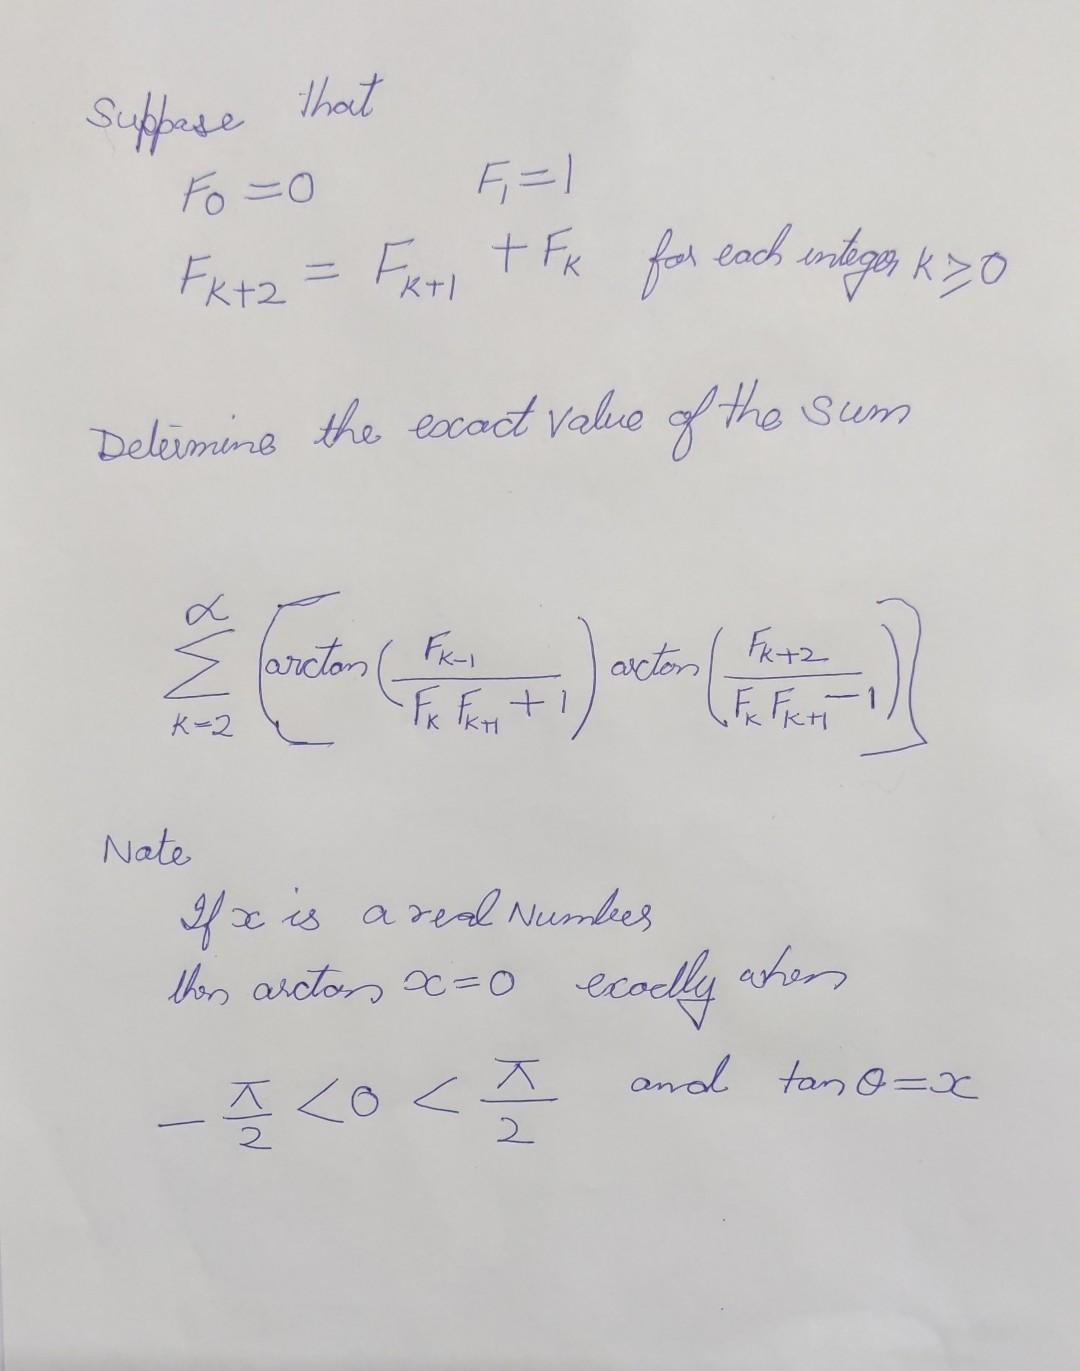 Suppose that
F₀ = 0 F₁ = 1
F_{k+2} = F_{k+1} + F_k for each integer k ≥ 0
Determine the exact value of the sum
∑_{k=2}^{∝} [arctan (F_{k-1} / (F_k F_{k+1} + 1)) arctan (F_{k+2} / (F_k F_{k+1} - 1))]
Note
If x is a real Number
then arctan x = 0 exactly when
-π/2 < 0 < π/2 and tan θ = x